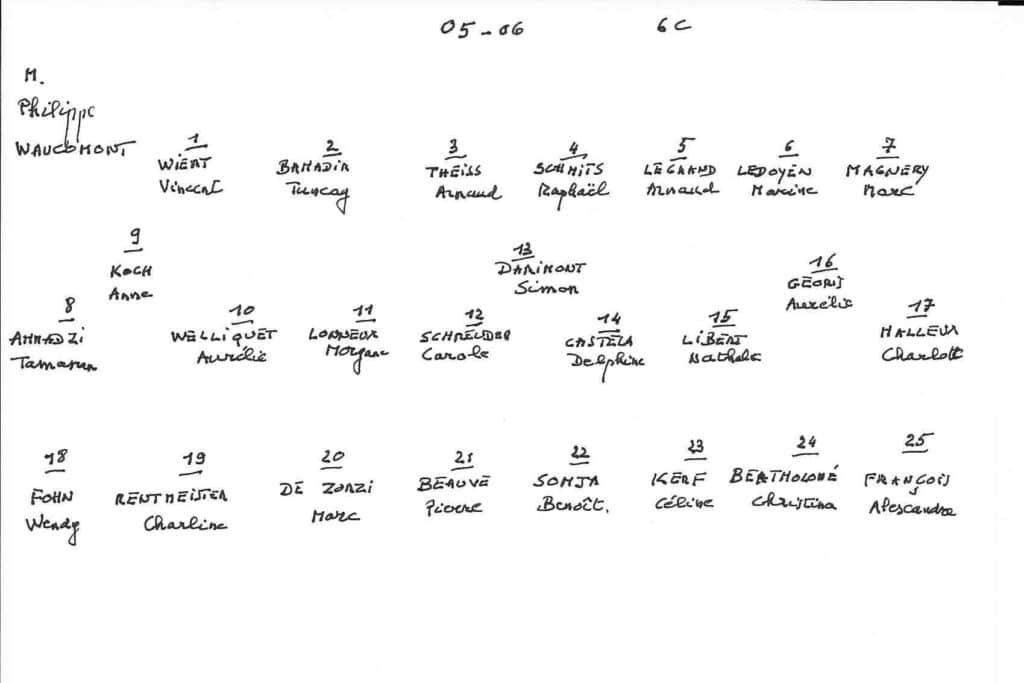 05-06 6C
M.
Philippe
WAUCOMONT
1 2 3 4 5 6 7
WIERT BAHADIR THEISS SCHMITS LEGRAND LEDOYEN MAGNERY
Vincent Tuncay Arnaud Raphaël Arnaud Maxime Marc
9 13 16
KOCH DARIMONT GEORIS
Anne Simon Aurélie
8 10 11 12 14 15 17
WELLIQUET LONNEUX SCHNEIDER CASTELA LIBERT HALLEUX
Aurélie Morgane Carole Delphine Charlott
18 19 20 21 22 23 24 25
FOHN RENTMEISTER DE ZORZI BEAUVE KERF BERTHOLOMÉ FRANÇOIS
Wendy Charline Marc Pierre Benoît. Céline Christina Alexandre